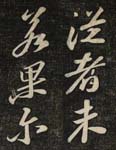 從者未
若果尔